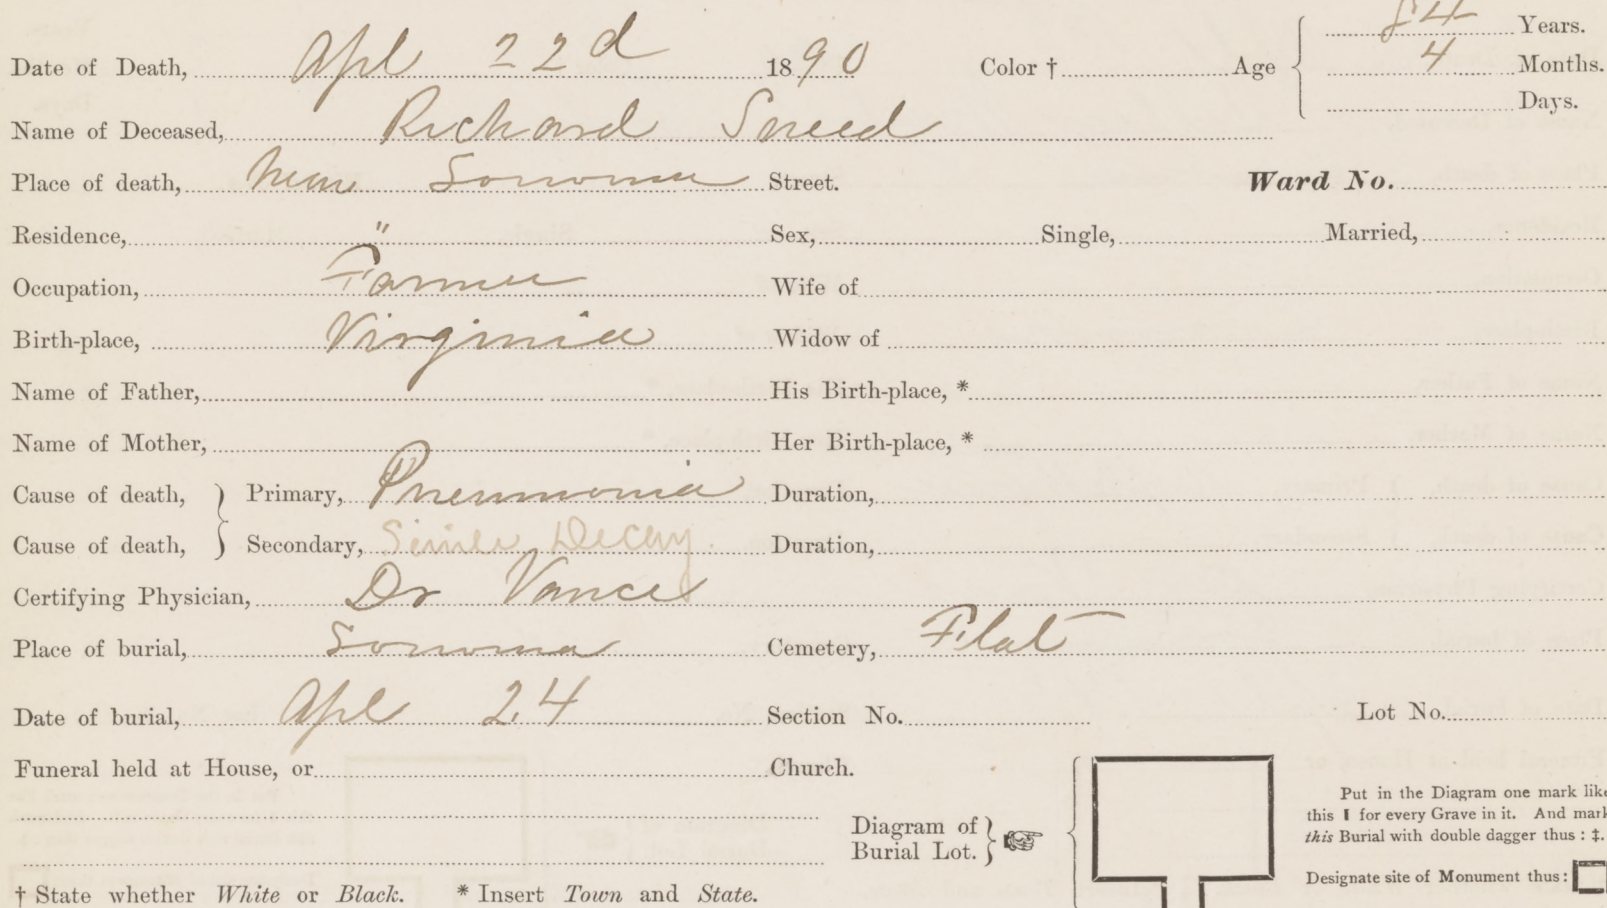 Date of Death, Apl 22d 1890 Color † Age 4 Years.
4 Months.
Days.
Name of Deceased, Richard Sneed
Place of death, Near Sonoma Street. Ward No.
Residence, " Sex, Single, Married,
Occupation, Farmer Wife of
Birth-place, Virginia Widow of
Name of Father, His Birth-place, *
Name of Mother, Her Birth-place, *
Cause of death, } Primary, Pneumonia Duration,
Cause of death, } Secondary, Decay. Duration,
Certifying Physician, Dr Vance
Place of burial, Sonoma Cemetery, Flat
Date of burial, Apl 24 Section No. Lot No.
Funeral held at House, or Church.
Diagram of
Burial Lot. }
Put in the Diagram one mark like
this ❙ for every Grave in it. And mark
this Burial with double dagger thus : ‡.
Designate site of Monument thus :
† State whether White or Black. * Insert Town and State.